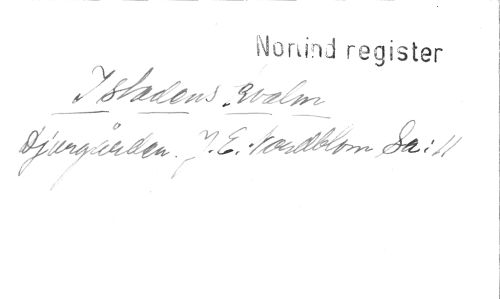 Norlind register
I stadens qvalm
Djurgården. J. E. Nordblom Sa: 11